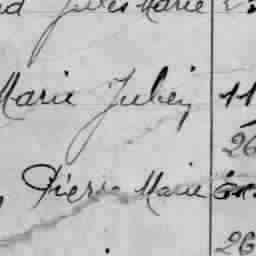 Jules Marie
Marie Julien 11
26
Pierre Marie
26